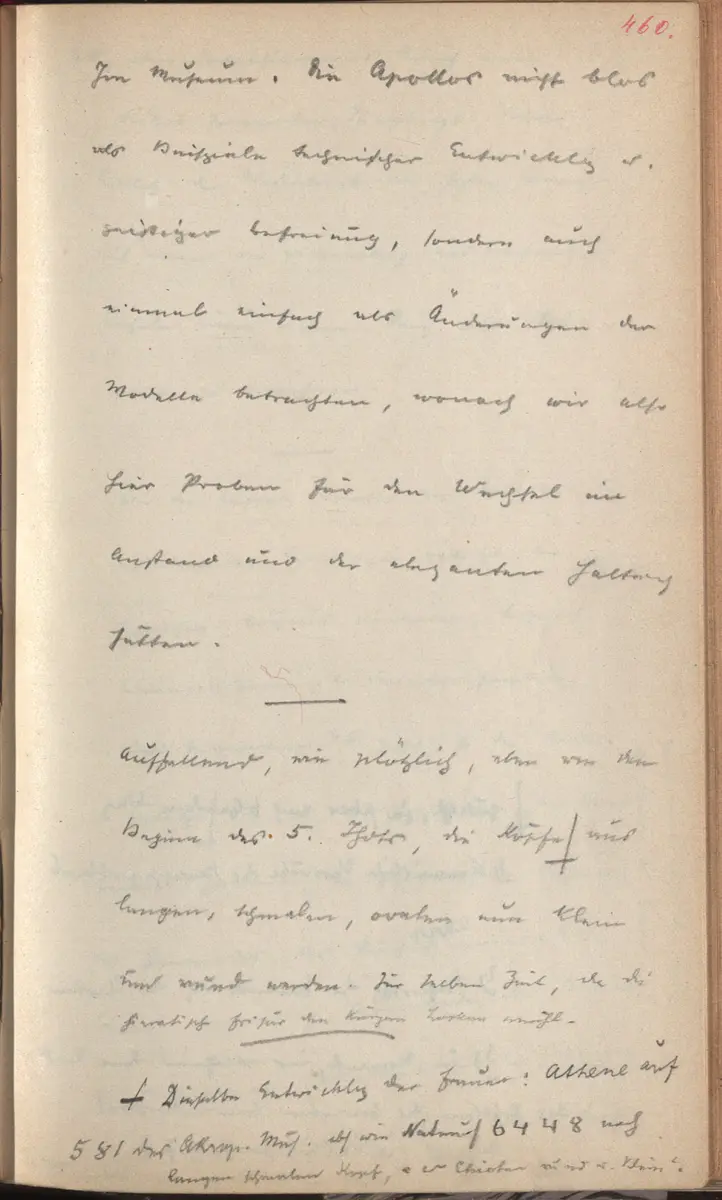 460.
Im Museum. Die Apollos nicht blos
als Beispiele technischer Entwicklg u.
geistiger Befreiung, sondern auch
einmal einfach als Änderungen der
Modelle betrachten, wonach wir also
hier Proben für den Wechsel im
Anstand und der eleganten Haltung
hätten.
Auffallend, wie plötzlich, eben vor dem
Beginn des 5. Jhdts, die Köpfe aus
langen, schmalen, ovalen nun klein
und rund werden. Zur selben Zeit, da die
hieratische Frisur den kurzen Locken
+ Dieselbe Entwicklg der Frauen: Athene auf
581 des Akrop. Mus. 6448 noch
langen schmalen Kopf, rund u. klein.